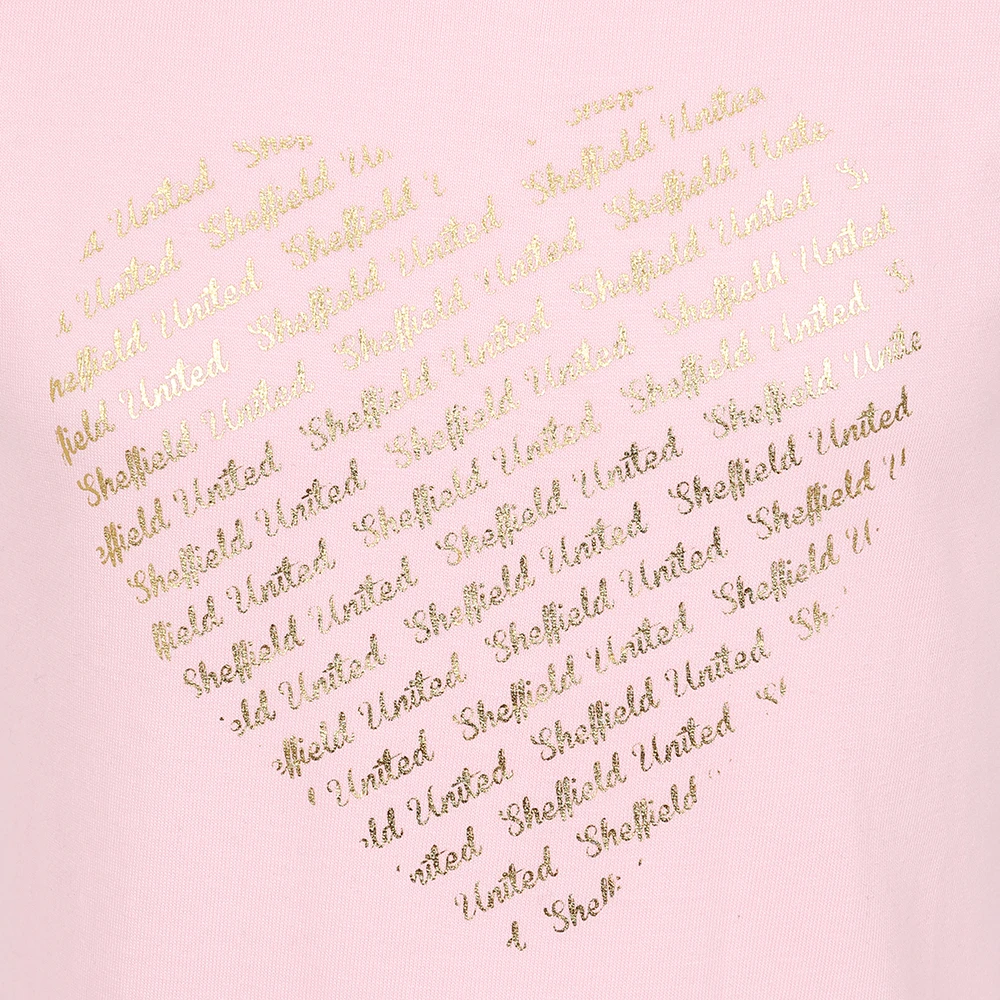 United Shef
d United Sheffield Un
heffield United Sheffield U
field United Sheffield United Sheffield United
Sheffield United Sheffield United Sheffield Unite
effield United Sheffield United Sheffield United S
Sheffield United Sheffield United Sheffield United
ffield United Sheffield United Sheffield United S
Sheffield United Sheffield United Sheffield Unite
eld United Sheffield United Sheffield United
ffield United Sheffield United Sheffield U
United Sheffield United Sheffield U
ld United Sheffield United Sh
nited Sheffield United S
United Sheffield
d Sheff